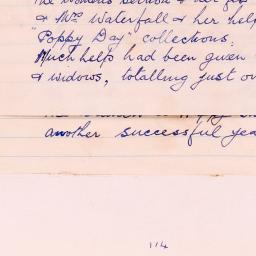 the womens section & her
& Mrs Waterfall & her help
"Poppy Day" collections.
Much help had been given
& widows, totalling just ov
another successful yea
114